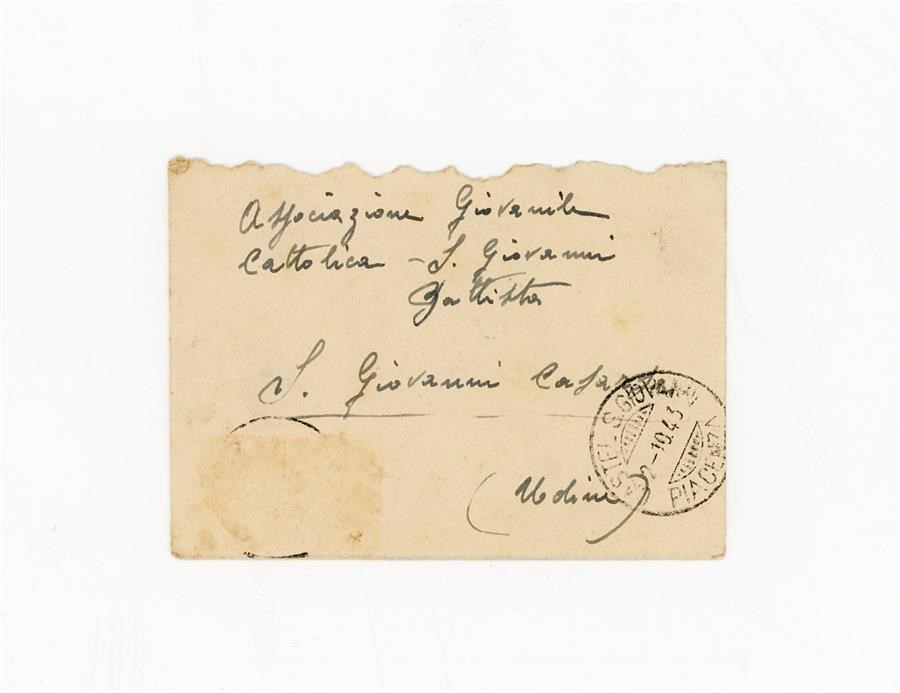 Associazione Giovanile
Cattolica - S. Giovanni
Battista
S. Giovanni Casarsa
(Udine)
CASTEL S. GIOVANNI
2-10.43
PIACENZA